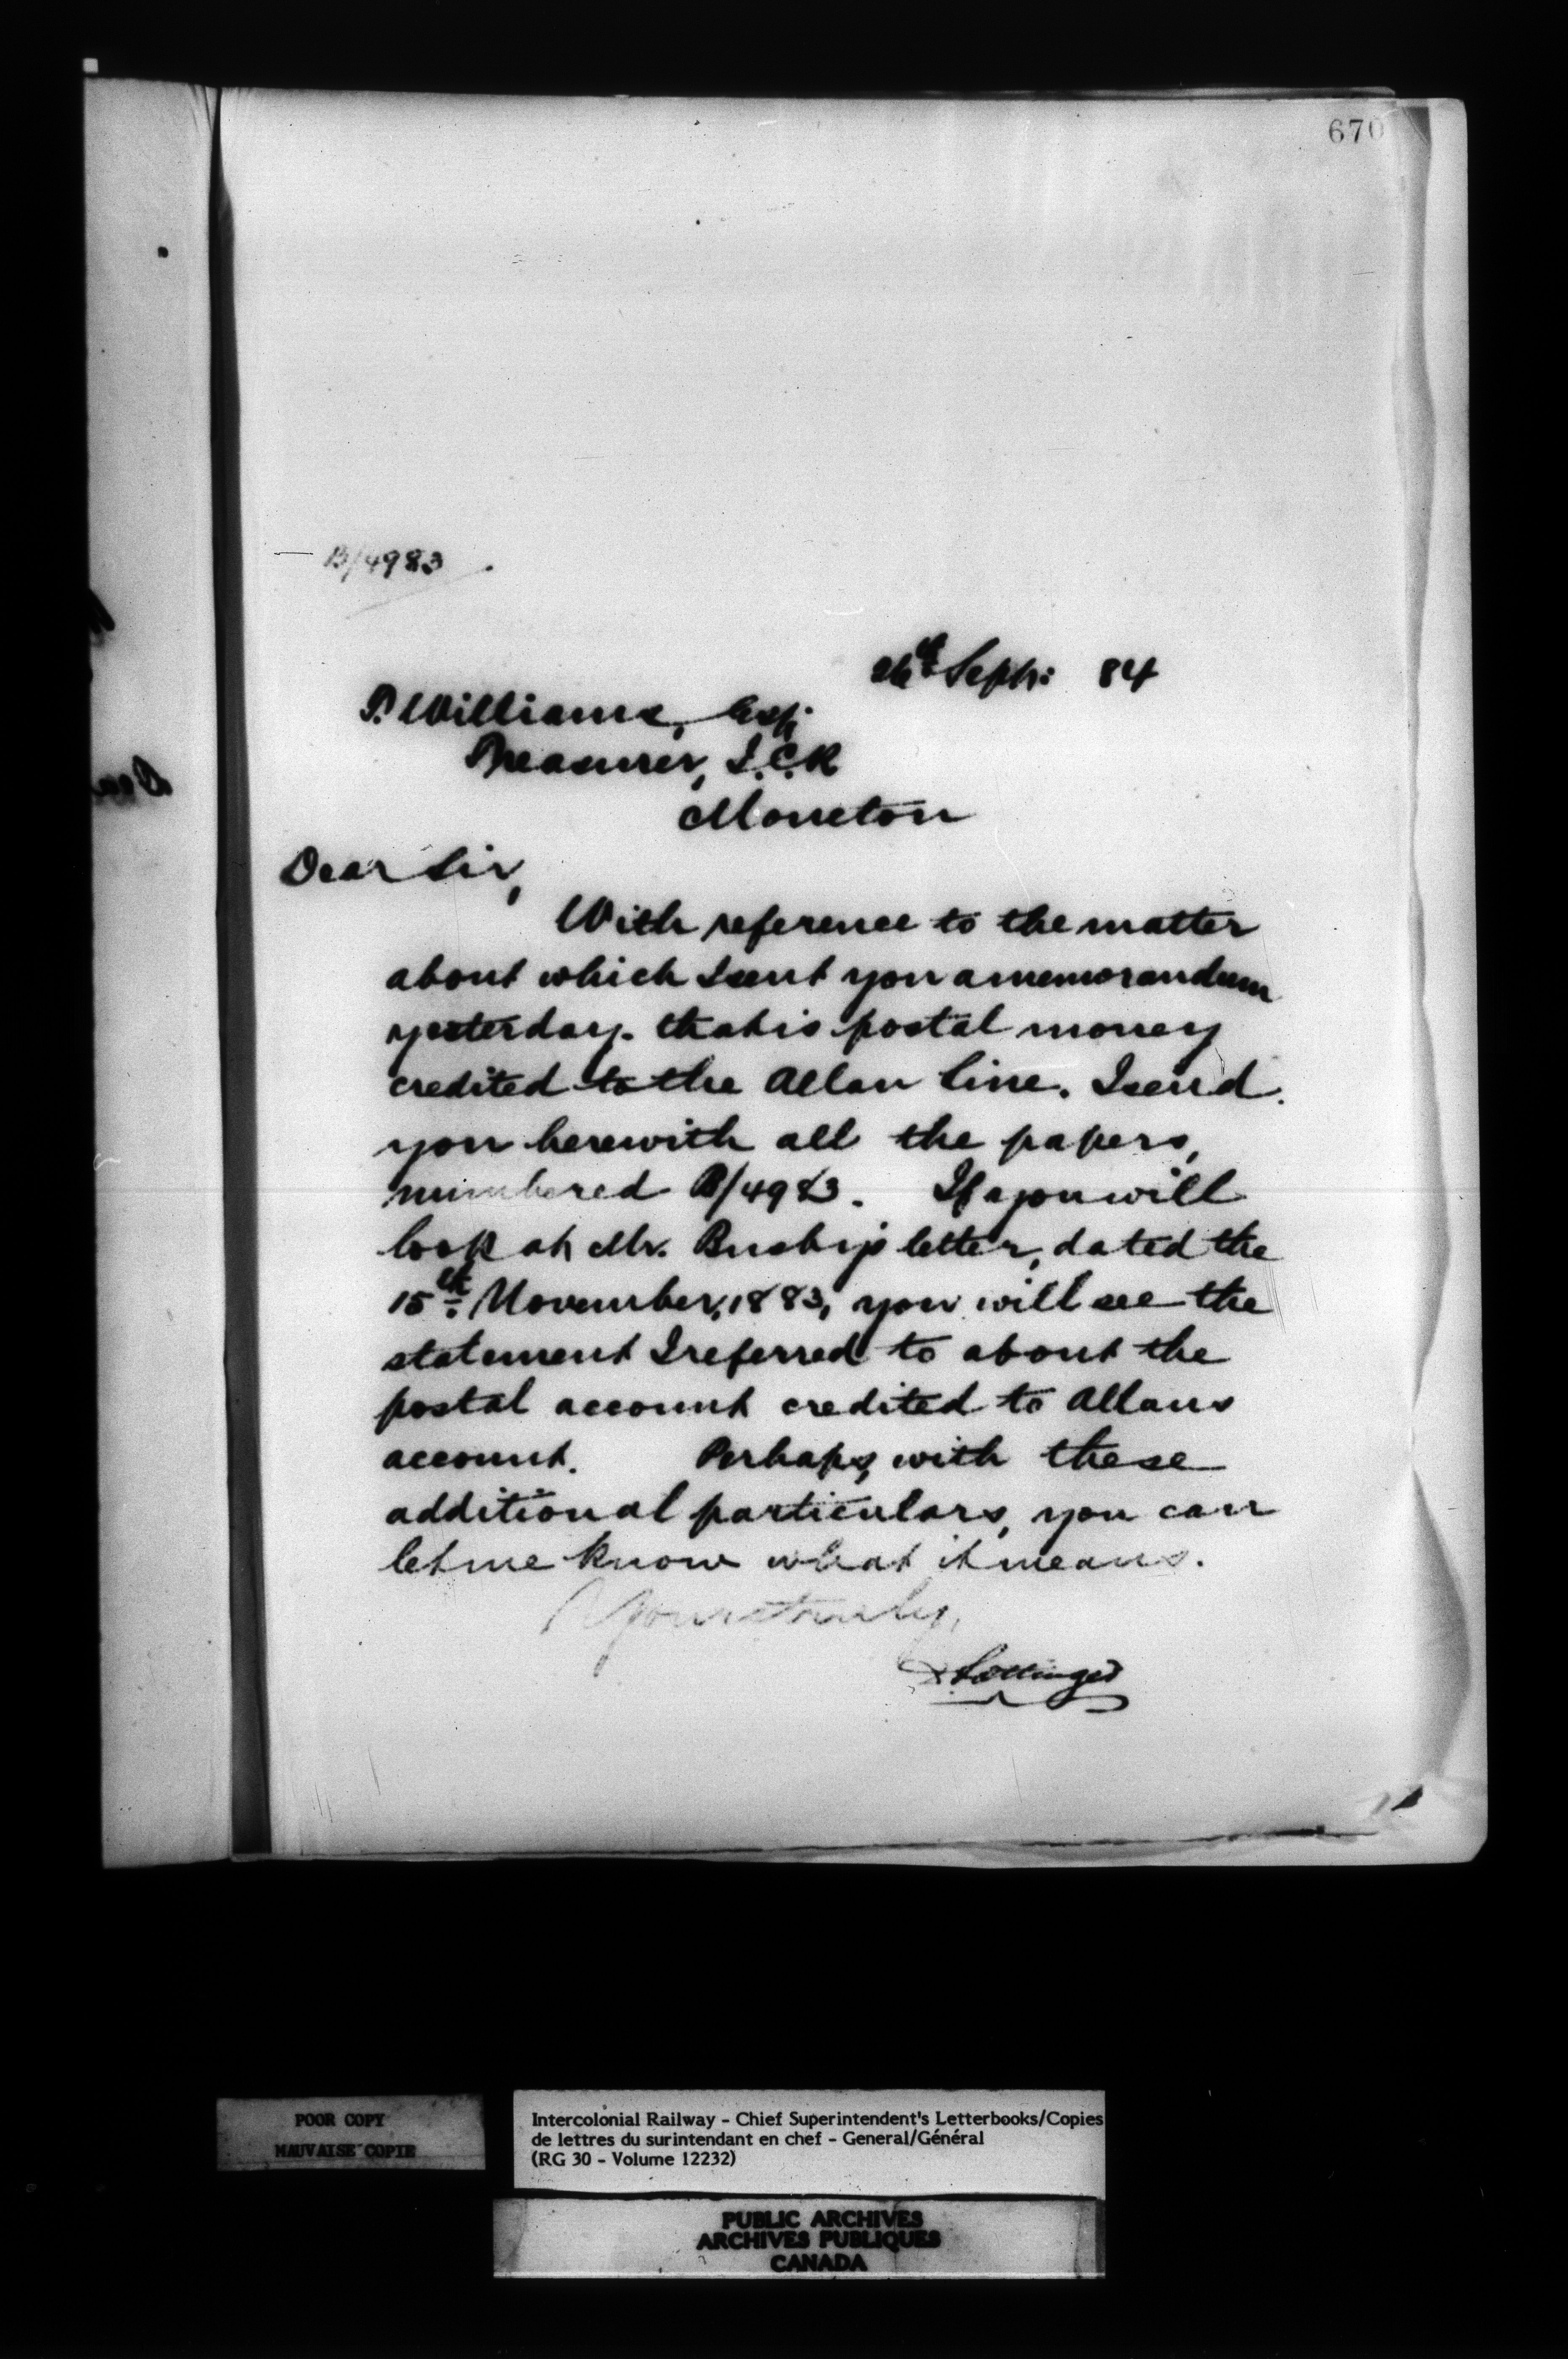 670
B/4983
26th Sept: 84
T. Williams, Esq:
Treasurer, I.C.R
Moncton
Dear Sir,
With reference to the matter
about which I sent you a memorandum
yesterday. that is postal money
credited to the Allan line. I send
you herewith all the papers,
numbered B/4983. If you will
look at Mr. Busby's letter, dated the
15th November, 1883, you will see the
statement I referred to about the
postal account credited to Allans
account. Perhaps, with these
additional particulars, you can
let me know what it means.
Yours truly,
D. Pottinger
POOR COPY
MAUVAISE COPIE
Intercolonial Railway - Chief Superintendent's Letterbooks/Copies
de lettres du surintendant en chef - General/Général
(RG 30 - Volume 12232)
PUBLIC ARCHIVES
ARCHIVES PUBLIQUES
CANADA